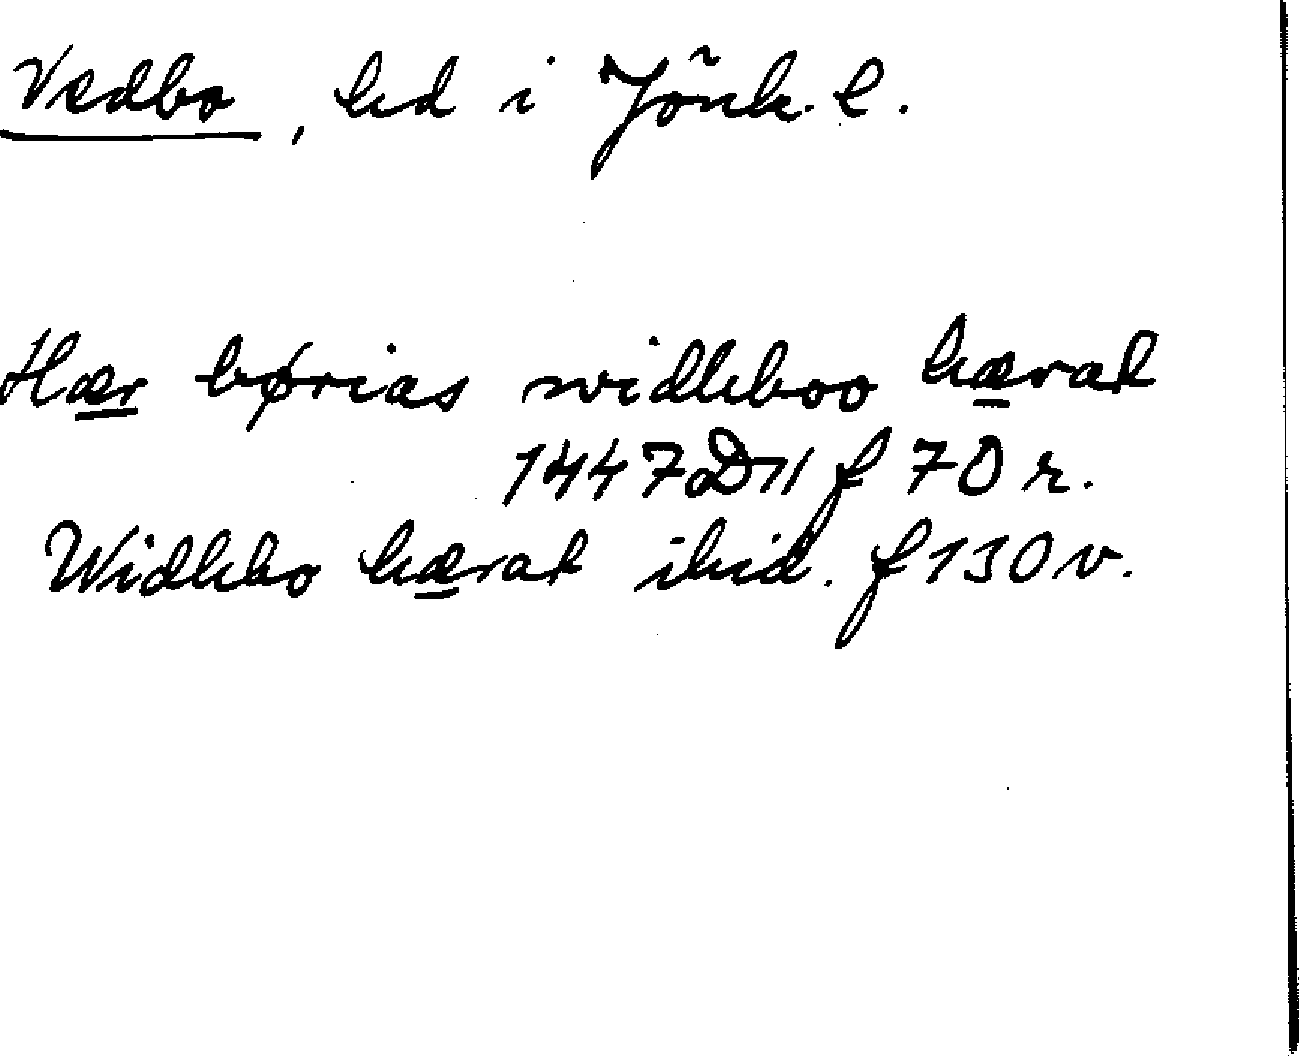 Vedbo, hd i Jönk. l.
Hær børias widhboo hærad
1447 D 11 f 70 r.
Widhbo hærad ibid. f 130 v.